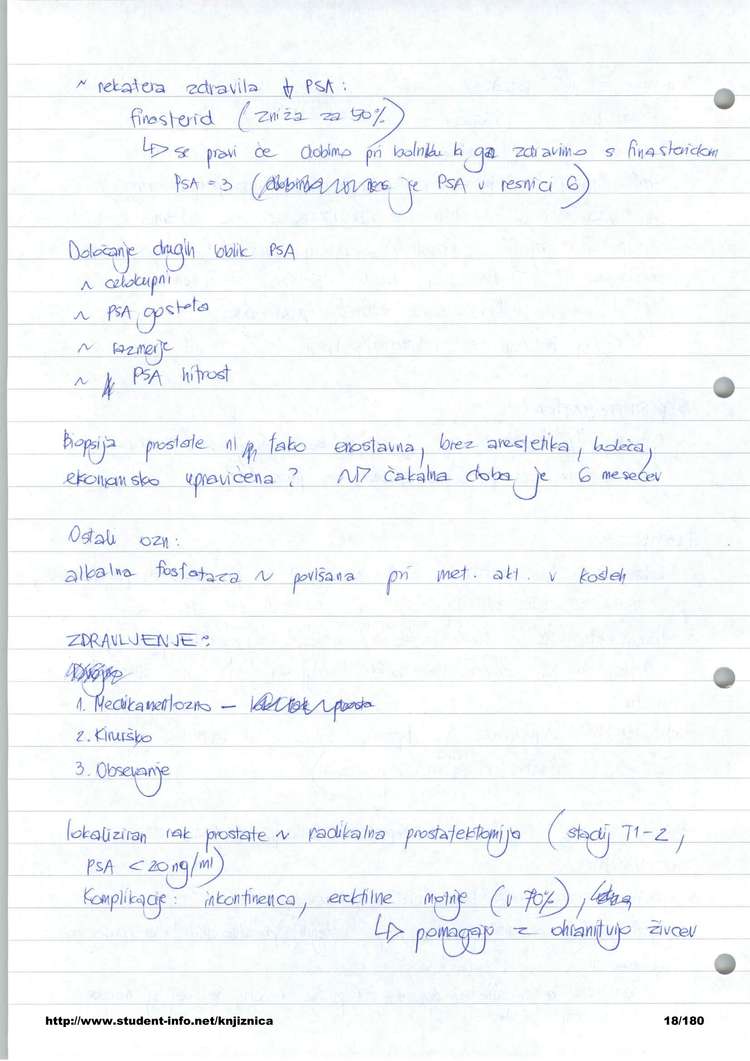 ~ nekatera zdravila ↓ PSA :
finasterid (zniža za 50%)
↳ se pravi če dobimo pri bolniku ki ga zdravimo s finasteridom
PSA = 3 ( je PSA v resnici 6)
Določanje drugih oblik PSA
~ celokupni
~ PSA gostota
~ razmerje
~ PSA hitrost
Biopsija prostate ni tako enostavna, brez anestetika, boleča,
ekonomsko upravičena? ~> čakalna doba je 6 mesečev
Ostali ozn:
alkalna fosfataza ~ povišana pri met. akt. v kosteh
ZDRAVLJENJE:
1. Medikamentozno –
2. Kirurško
3. Obsevanje
lokaliziran rak prostate ~ radikalna prostatektomija (stadij T1-2,
PSA < 20 ng/ml)
Komplikacije: inkontinenca, erektilne motnje (v 70%),
↳ pomagajo z ohranitvijo živcev
http://www.student-info.net/knjiznica 18/180